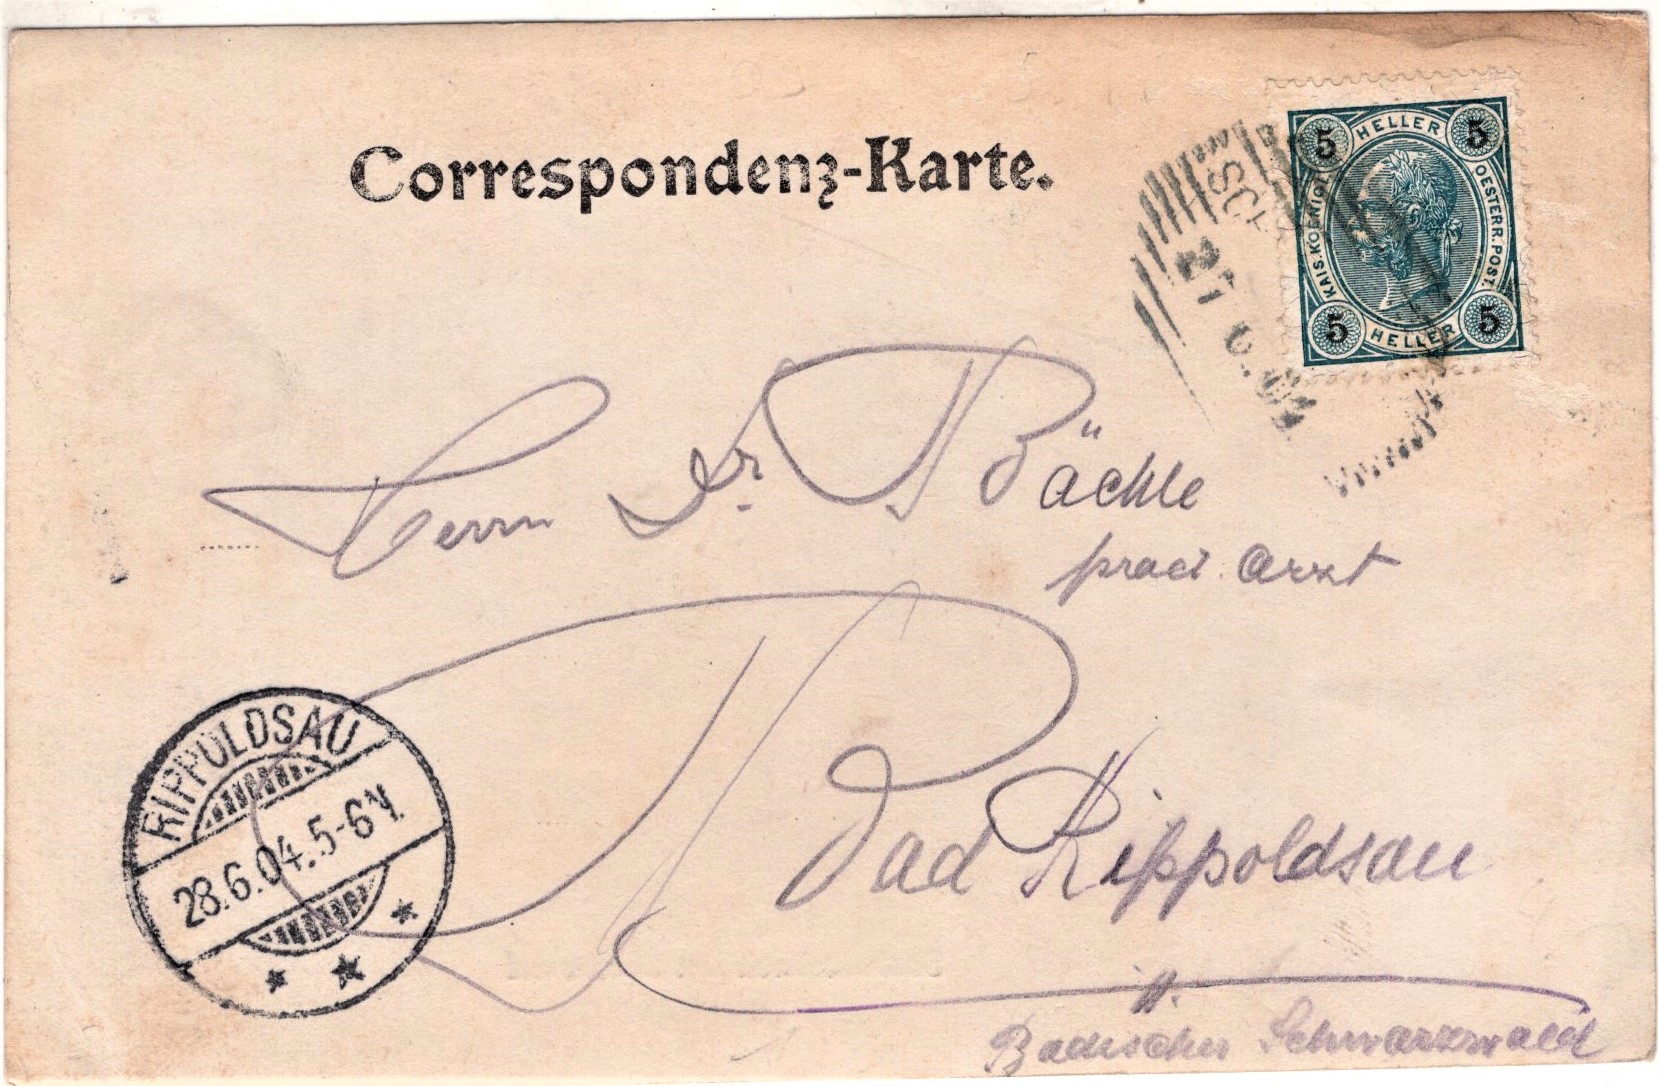 Correspondenz-Karte.
5 HELLER 5
KAIS. KOENIGL.
OESTERR. POST.
5 HELLER 5
27
Herrn Dr. Bächle
pract. Arzt
Bad Rippoldsau
Badischer Schwarzwald
RIPPOLDSAU
28.6.04. 5-6 N.